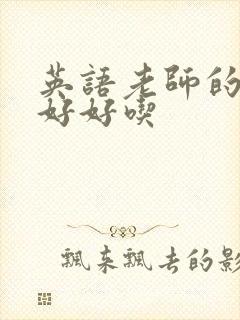 英語老師的
好好喫
飄來飄去的影